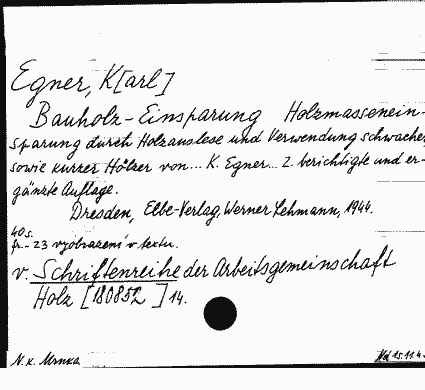 Egner, K[arl]
Bauholz-Einsparung Holzmassenein-
sparung durch Holzauslese und Verwendung schwacher
sowie kurzer Hölzer von... K. Egner... 2. berichtigte und er-
gänzte Auflage.
Dresden, Elbe-Verlag, Werner Lehmann, 1944.
40 s.
fr.- 23 vyobrazení v textu.
v. Schriftenreihe der Arbeitsgemeinschaft
Holz [180852] 14.
N. k. Mrnka
15.11.4